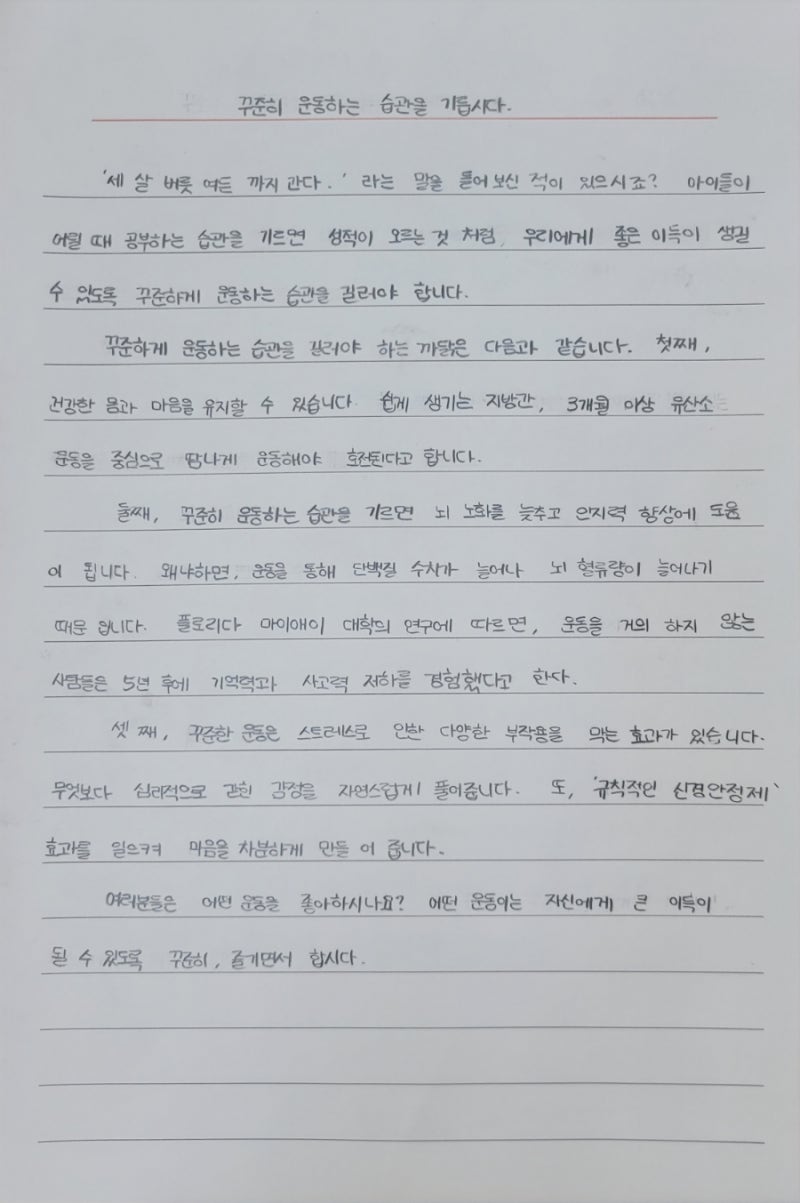 꾸준히 운동하는 습관을 기릅시다.
'세 살 버릇 여든 까지 간다.' 라는 말을 들어 보신 적이 있으시죠? 아이들이
어릴 때 공부하는 습관을 기르면 성적이 오르는 것 처럼, 우리에게 좋은 이득이 생길
수 있도록 꾸준하게 운동하는 습관을 길러야 합니다.
꾸준하게 운동하는 습관을 길러야 하는 까닭은 다음과 같습니다. 첫째,
건강한 몸과 마음을 유지할 수 있습니다. 쉽게 생기는 지방간, 3개월 이상 유산소
운동을 중심으로 땀나게 운동해야 호전된다고 합니다.
둘째, 꾸준히 운동하는 습관을 기르면 뇌 노화를 늦추고 인지력 향상에 도움
이 됩니다. 왜냐하면, 운동을 통해 단백질 수치가 늘어나 뇌 혈류량이 늘어나기
때문 입니다. 플로리다 마이애미 대학의 연구에 따르면, 운동을 거의 하지 않는
사람들은 5년 후에 기억력과 사고력 저하를 경험했다고 한다.
셋 째, 꾸준한 운동은 스트레스로 인한 다양한 부작용을 막는 효과가 있습니다.
무엇보다 심리적으로 갇힌 감정을 자연스럽게 풀어줍니다. 또, '규칙적인 신경안정제'
효과를 일으켜 마음을 차분하게 만들 어 줍니다.
여러분들은 어떤 운동을 좋아하시나요? 어떤 운동이든 자신에게 큰 이득이
될 수 있도록 꾸준히, 즐기면서 합시다.